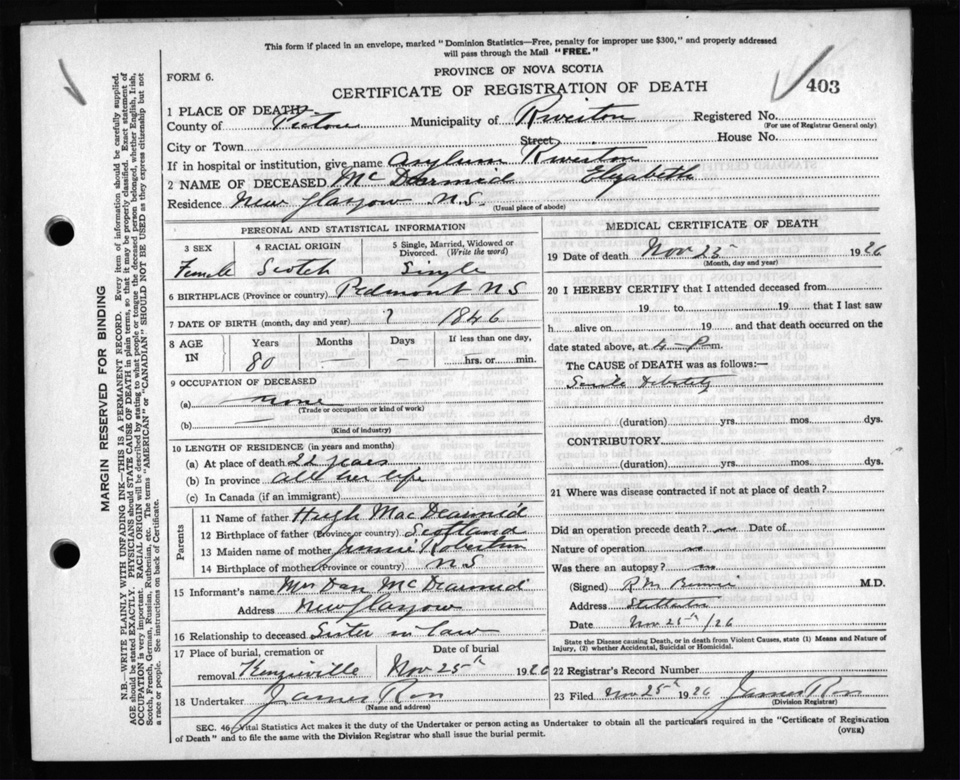 This form if placed in an envelope, marked "Dominion Statistics—Free, penalty for improper use $300," and properly addressed
will pass through the Mail "FREE."
FORM 6.
PROVINCE OF NOVA SCOTIA
CERTIFICATE OF REGISTRATION OF DEATH
403
1 PLACE OF DEATH
County of Pictou Municipality of Riverton Registered No.
(For use of Registrar General only)
City or Town Street House No.
If in hospital or institution, give name Asylum Riverton
2 NAME OF DECEASED McDearmid Elizabeth
Residence New Glasgow N.S.
(Usual place of abode)
PERSONAL AND STATISTICAL INFORMATION
3 SEX 4 RACIAL ORIGIN 5 Single, Married, Widowed or Divorced. (Write the word)
Female Scotch Single
6 BIRTHPLACE (Province or country) Pedmont N S
7 DATE OF BIRTH (month, day and year) ? 1846
8 AGE IN Years Months Days If less than one day,
80 — — hrs. or min.
9 OCCUPATION OF DECEASED
(a) none
(Trade or occupation or kind of work)
(b)
(Kind of industry)
10 LENGTH OF RESIDENCE (in years and months)
(a) At place of death 22 years
(b) In province all her life
(c) In Canada (if an immigrant)
Parents
11 Name of father Hugh MacDearmid
12 Birthplace of father (Province or country) Scotland
13 Maiden name of mother Jennie Robertson
14 Birthplace of mother (Province or country) N S
15 Informant's name Mrs Dan McDearmid
Address New Glasgow
16 Relationship to deceased Sister in law
17 Place of burial, cremation or removal Date of burial
Kenzieville Nov 25th 1926
18 Undertaker James Ron
(Name and address)
MEDICAL CERTIFICATE OF DEATH
19 Date of death Nov 25 1926
(Month, day and year)
20 I HEREBY CERTIFY that I attended deceased from
19 to 19 that I last saw
h alive on 19 and that death occurred on
date stated above, at 4 P m.
The CAUSE of DEATH was as follows:—
Senile debility
(duration) yrs. mos. dys.
CONTRIBUTORY
(duration) yrs. mos. dys.
21 Where was disease contracted if not at place of death?
Did an operation precede death? no Date of
Nature of operation no
Was there an autopsy? no
(Signed) R M Bennie M.D.
Address Stellarton
Date Nov 25th/26
State the Disease causing Death, or in death from Violent Causes, state (1) Means and Nature of
Injury, (2) whether Accidental, Suicidal or Homicidal.
22 Registrar's Record Number
23 Filed Nov 25th 1926 James Ron
(Division Registrar)
SEC. 46, Vital Statistics Act makes it the duty of the Undertaker or person acting as Undertaker to obtain all the particulars required in the "Certificate of Registration
of Death" and to file the same with the Division Registrar who shall issue the burial permit.
(OVER)
MARGIN RESERVED FOR BINDING
N.B.—WRITE PLAINLY WITH UNFADING INK—THIS IS A PERMANENT RECORD. Every item of information should be carefully supplied.
AGE should be stated EXACTLY. PHYSICIANS should STATE CAUSE OF DEATH in plain terms, so that it may be properly classified. Exact statement of
OCCUPATION is very important. RACIAL ORIGIN will be described by stating to what people or tongue the deceased person belonged, whether English, Irish,
Scotch, French, German, Russian, Ruthenian, etc. The terms "AMERICAN" or "CANADIAN" SHOULD NOT BE USED as they express citizenship but not
a race or people. See instructions on back of Certificate.